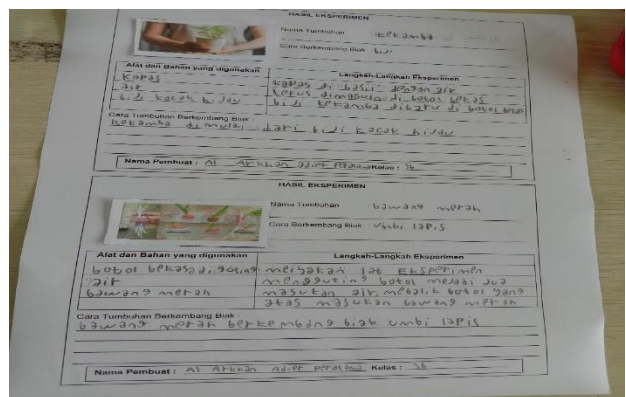 HASIL EKSPERIMEN
Nama Tumbuhan : kekamba
Cara Berkembang Biak : biji
Alat dan Bahan yang digunakan
Langkah-Langkah Eksperimen
kapas
kapas di basui dengan air
air
terus dimasukan di botol bekas
biji kacak hidau
biji kekamba ditaru di botol
Cara Tumbuhan Berkembang Biak :
kekamba dimulai dari biji kacak hidau
Nama Pembuat : Al Arkhan Kelas : 3b
HASIL EKSPERIMEN
Nama Tumbuhan : bawang merah
Cara Berkembang Biak : umbi lapis
Alat dan Bahan yang digunakan
Langkah-Langkah Eksperimen
botol bekas digunting
alat Eksperimen
air
menggunting botol dua
bawang merah
masukan air, botol yang
atas masukan bawang merah
Cara Tumbuhan Berkembang Biak :
bawang merah berkembang biak umbi lapis
Nama Pembuat : Al Arkhan Kelas : 3b